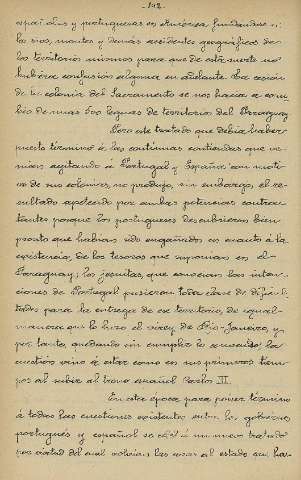 -142-
españolas y portuguesas en América, fundandose en
los rios, montes y demás accidentes geográficos de
los territorios mismos para que de esta suerte no
hubiera confusión alguna en adelante. La cesión
de la colonia del Sacramento se nos hacia a cam-
bio de unas 500 leguas de territorio del Paraguay
Pero este tratado que debia haber
puesto termino á las continuas contiendas que ve-
nian agitando á Portugal y España con moti-
vo de sus colonias, no produjo sin embargo, el re-
sultado apetecido por ambas potencias contra-
tantes porque los portugueses descubrieron bien
pronto que habian sido engañados en cuanto á la
existencia de los tesoros que suponian en el
Paraguay; los jesuitas, que conocian las inten-
ciones de Portugal pusieron toda clase de dificul-
tades para la entrega de ese territorio, de igual
manera que lo hizo el virey de Rio-Janeiro, y
por tanto, quedando sin cumplir lo convenido la
cuestión vino á estar como en sus primeros tiem-
pos al subir al trono español Carlos III.
En esta época para poner término
á todas las cuestiones existentes entre los gobiernos
portugués y español se un nuevo tratado
por virtud del cual volvian las cosas al estado que ha-